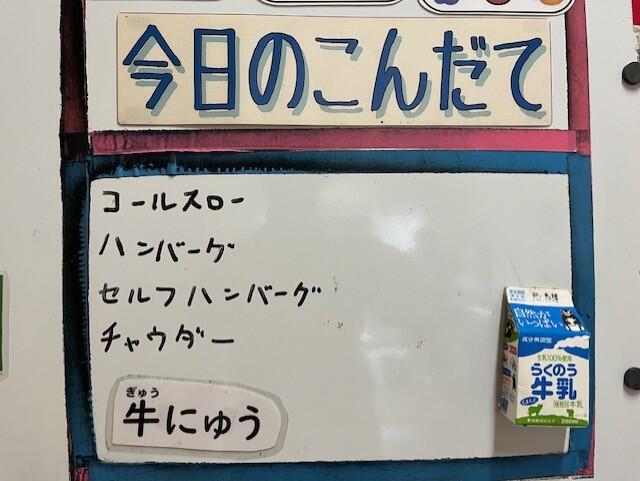 今日のこんだて
コールスロー
ハンバーグ
セルフハンバーグ
チャウダー
ぎゅう
牛にゅう
自然が
いっぱい
成分無調整
生乳100%使用
らくのう
牛乳
種類別牛乳
200ml